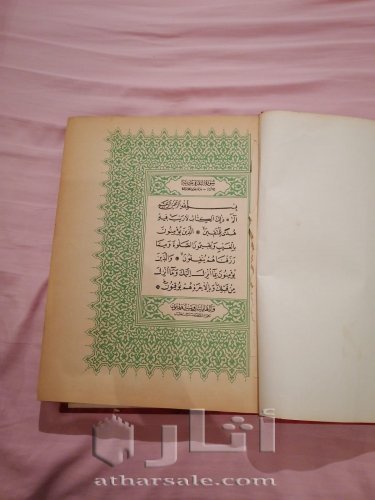 سورة البقرة مدنية
بسم الله الرحمن الرحيم
الم ذلك الكتاب لا ريب فيه
هدى للمتقين الذين يؤمنون
بالغيب ويقيمون الصلوة ومما
رزقناهم ينفقون والذين
يؤمنون بما أنزل إليك وما أنزل
من قبلك وبالآخرة هم يوقنون
أثار
atharsale.com